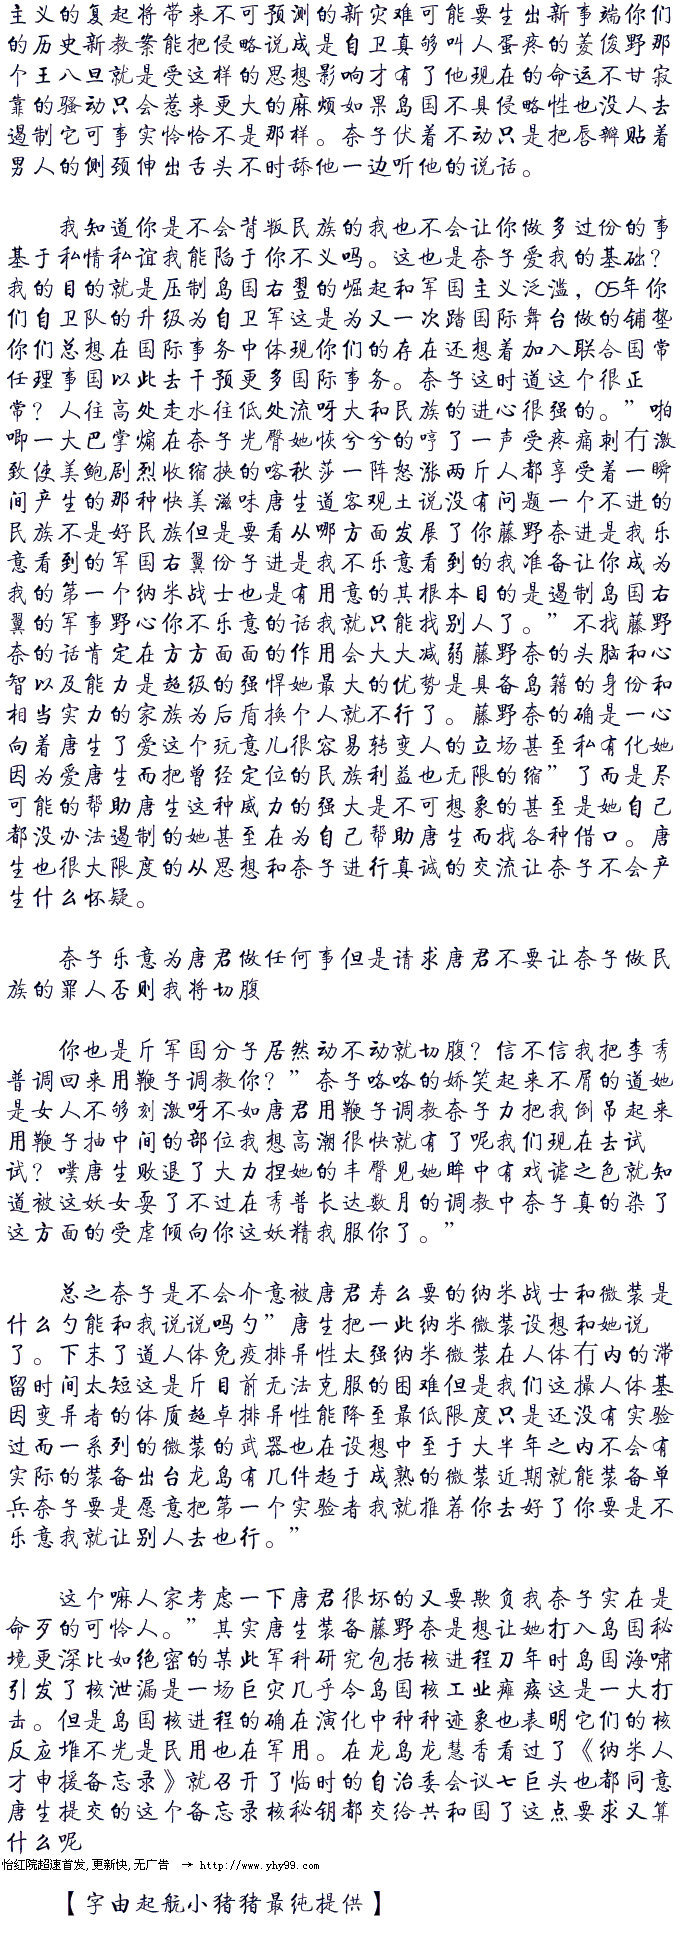 主义的复起将带来不可预测的新灾难可能要生出新事端你们
的历史新教案能把侵略说成是自卫真够叫人蛋疼的菱俊野那
个王八旦就是受这样的思想影响才有了他现在的命运不甘寂
靠的骚动只会惹来更大的麻烦如果岛国不具侵略性也没人去
遏制它可事实怜恰不是那样。奈子伏着不动只是把唇瓣贴着
男人的侧颈伸出舌头不时舔他一边听他的说话。

我知道你是不会背叛民族的我也不会让你做多过份的事
基于私情私谊我能陷于你不义吗。这也是奈子爱我的基础？
我的目的就是压制岛国右翌的崛起和军国主义泛滥，05年你
们自卫队的升级为自卫军这是为又一次踏国际舞台做的铺垫
你们总想在国际事务中体现你们的存在还想着加入联合国常
任理事国以此去干预更多国际事务。奈子这时道这个很正
常？人往高处走水往低处流呀大和民族的进心很强的。”啪
唧一大巴掌煽在奈子光臀她恢兮兮的哼了一声受疼痛刺冇激
致使美鲍剧烈收缩挟的喀秋莎一阵怒涨两斤人都享受着一瞬
间产生的那种快美滋味唐生道客观土说没有问题一个不进的
民族不是好民族但是要看从哪方面发展了你藤野奈进是我乐
意看到的军国右翼份子进是我不乐意看到的我准备让你成为
我的第一个纳米战士也是有用意的其根本目的是遏制岛国右
翼的军事野心你不乐意的话我就只能找别人了。”不找藤野
奈的话肯定在方方面面的作用会大大减弱藤野奈的头脑和心
智以及能力是超级的强悍她最大的优势是具备岛籍的身份和
相当实力的家族为后盾换个人就不行了。藤野奈的确是一心
向着唐生了爱这个玩意儿很容易转变人的立场甚至私有化她
因为爱唐生而把曾经定位的民族利益也无限的缩”了而是尽
可能的帮助唐生这种威力的强大是不可想象的甚至是她自己
都没办法遏制的她甚至在为自己帮助唐生而找各种借口。唐
生也很大限度的从思想和奈子进行真诚的交流让奈子不会产
生什么怀疑。

奈子乐意为唐君做任何事但是请求唐君不要让奈子做民
族的罪人否则我将切腹

你也是斤军国分子居然动不动就切腹？信不信我把李秀
普调回来用鞭子调教你？”奈子咯咯的娇笑起来不屑的道她
是女人不够刻激呀不如唐君用鞭子调教奈子力把我倒吊起来
用鞭子抽中间的部位我想高潮很快就有了呢我们现在去试
试？噗唐生败退了大力捏她的丰臀见她眸中有戏谑之色就知
道被这妖女耍了不过在秀普长达数月的调教中奈子真的染了
这方面的受虐倾向你这妖精我服你了。”

总之奈子是不会介意被唐君寿么要的纳米战士和微装是
什么勺能和我说说吗勺”唐生把一此纳米微装设想和她说
了。下末了道人体免疫排异性太强纳米微装在人体冇内的滞
留时间太短这是斤目前无法克服的困难但是我们这撮人体基
因变异者的体质超卓排异性能降至最低限度只是还没有实验
过而一系列的微装的武器也在设想中至于大半年之内不会有
实际的装备出台龙岛有几件趋于成熟的微装近期就能装备单
兵奈子要是愿意把第一个实验者我就推荐你去好了你要是不
乐意我就让别人去也行。”

这个嘛人家考虑一下唐君很坏的又要欺负我奈子实在是
命歹的可怜人。”其实唐生装备藤野奈是想让她打入岛国秘
境更深比如绝密的某此军科研究包括核进程刀年时岛国海啸
引发了核泄漏是一场巨灾几乎令岛国核工业瘫痪这是一大打
击。但是岛国核进程的确在演化中种种迹象也表明它们的核
反应堆不光是民用也在军用。在龙岛龙慧香看过了《纳米人
才申援备忘录》就召开了临时的自治委会议七巨头也都同意
唐生提交的这个备忘录核秘钥都交给共和国了这点要求又算
什么呢
怡红院超速首发,更新快,无广告 → http://www.yhy99.com
【字由起航小猪猪最纯提供】